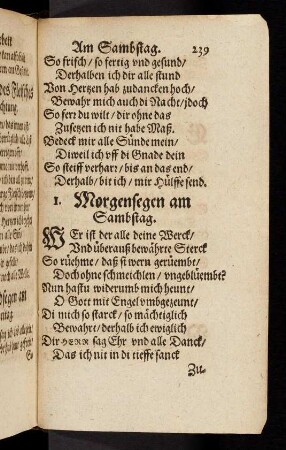 Am Sambstag. 239
So frisch/ so fertig vnd gesund/
Derhalben ich dir alle stund
Von Hertzen hab zudancken hoch/
Bewahr mich auch di Nacht/ jdoch
So fer: du wilt/ dir ohne das
Zusetzen ich nit habe Maß.
Bedeck mir alle Sünde mein/
Diweil ich vff di Gnade dein
So steiff verharr/ bis an das end/
Derhalb/ bit ich/ mir Hülffe send.
1. Morgensegen am
Sambstag.
WEr ist der alle deine Werck/
Vnd überauß bewährte Sterck
So rüehme/ daß si wern gerüembt/
Doch ohne schmeichlen/ vngeblüembt?
Nun hastu widerumb mich heunt/
O Gott mit Engel vmbgezeunt/
Di mich so starck/ so mächtiglich
Bewahrt/ derhalb ich ewiglich
Dir HERR sag Ehr vnd alle Danck/
Das ich nit in di tieffe sanck
Zu-